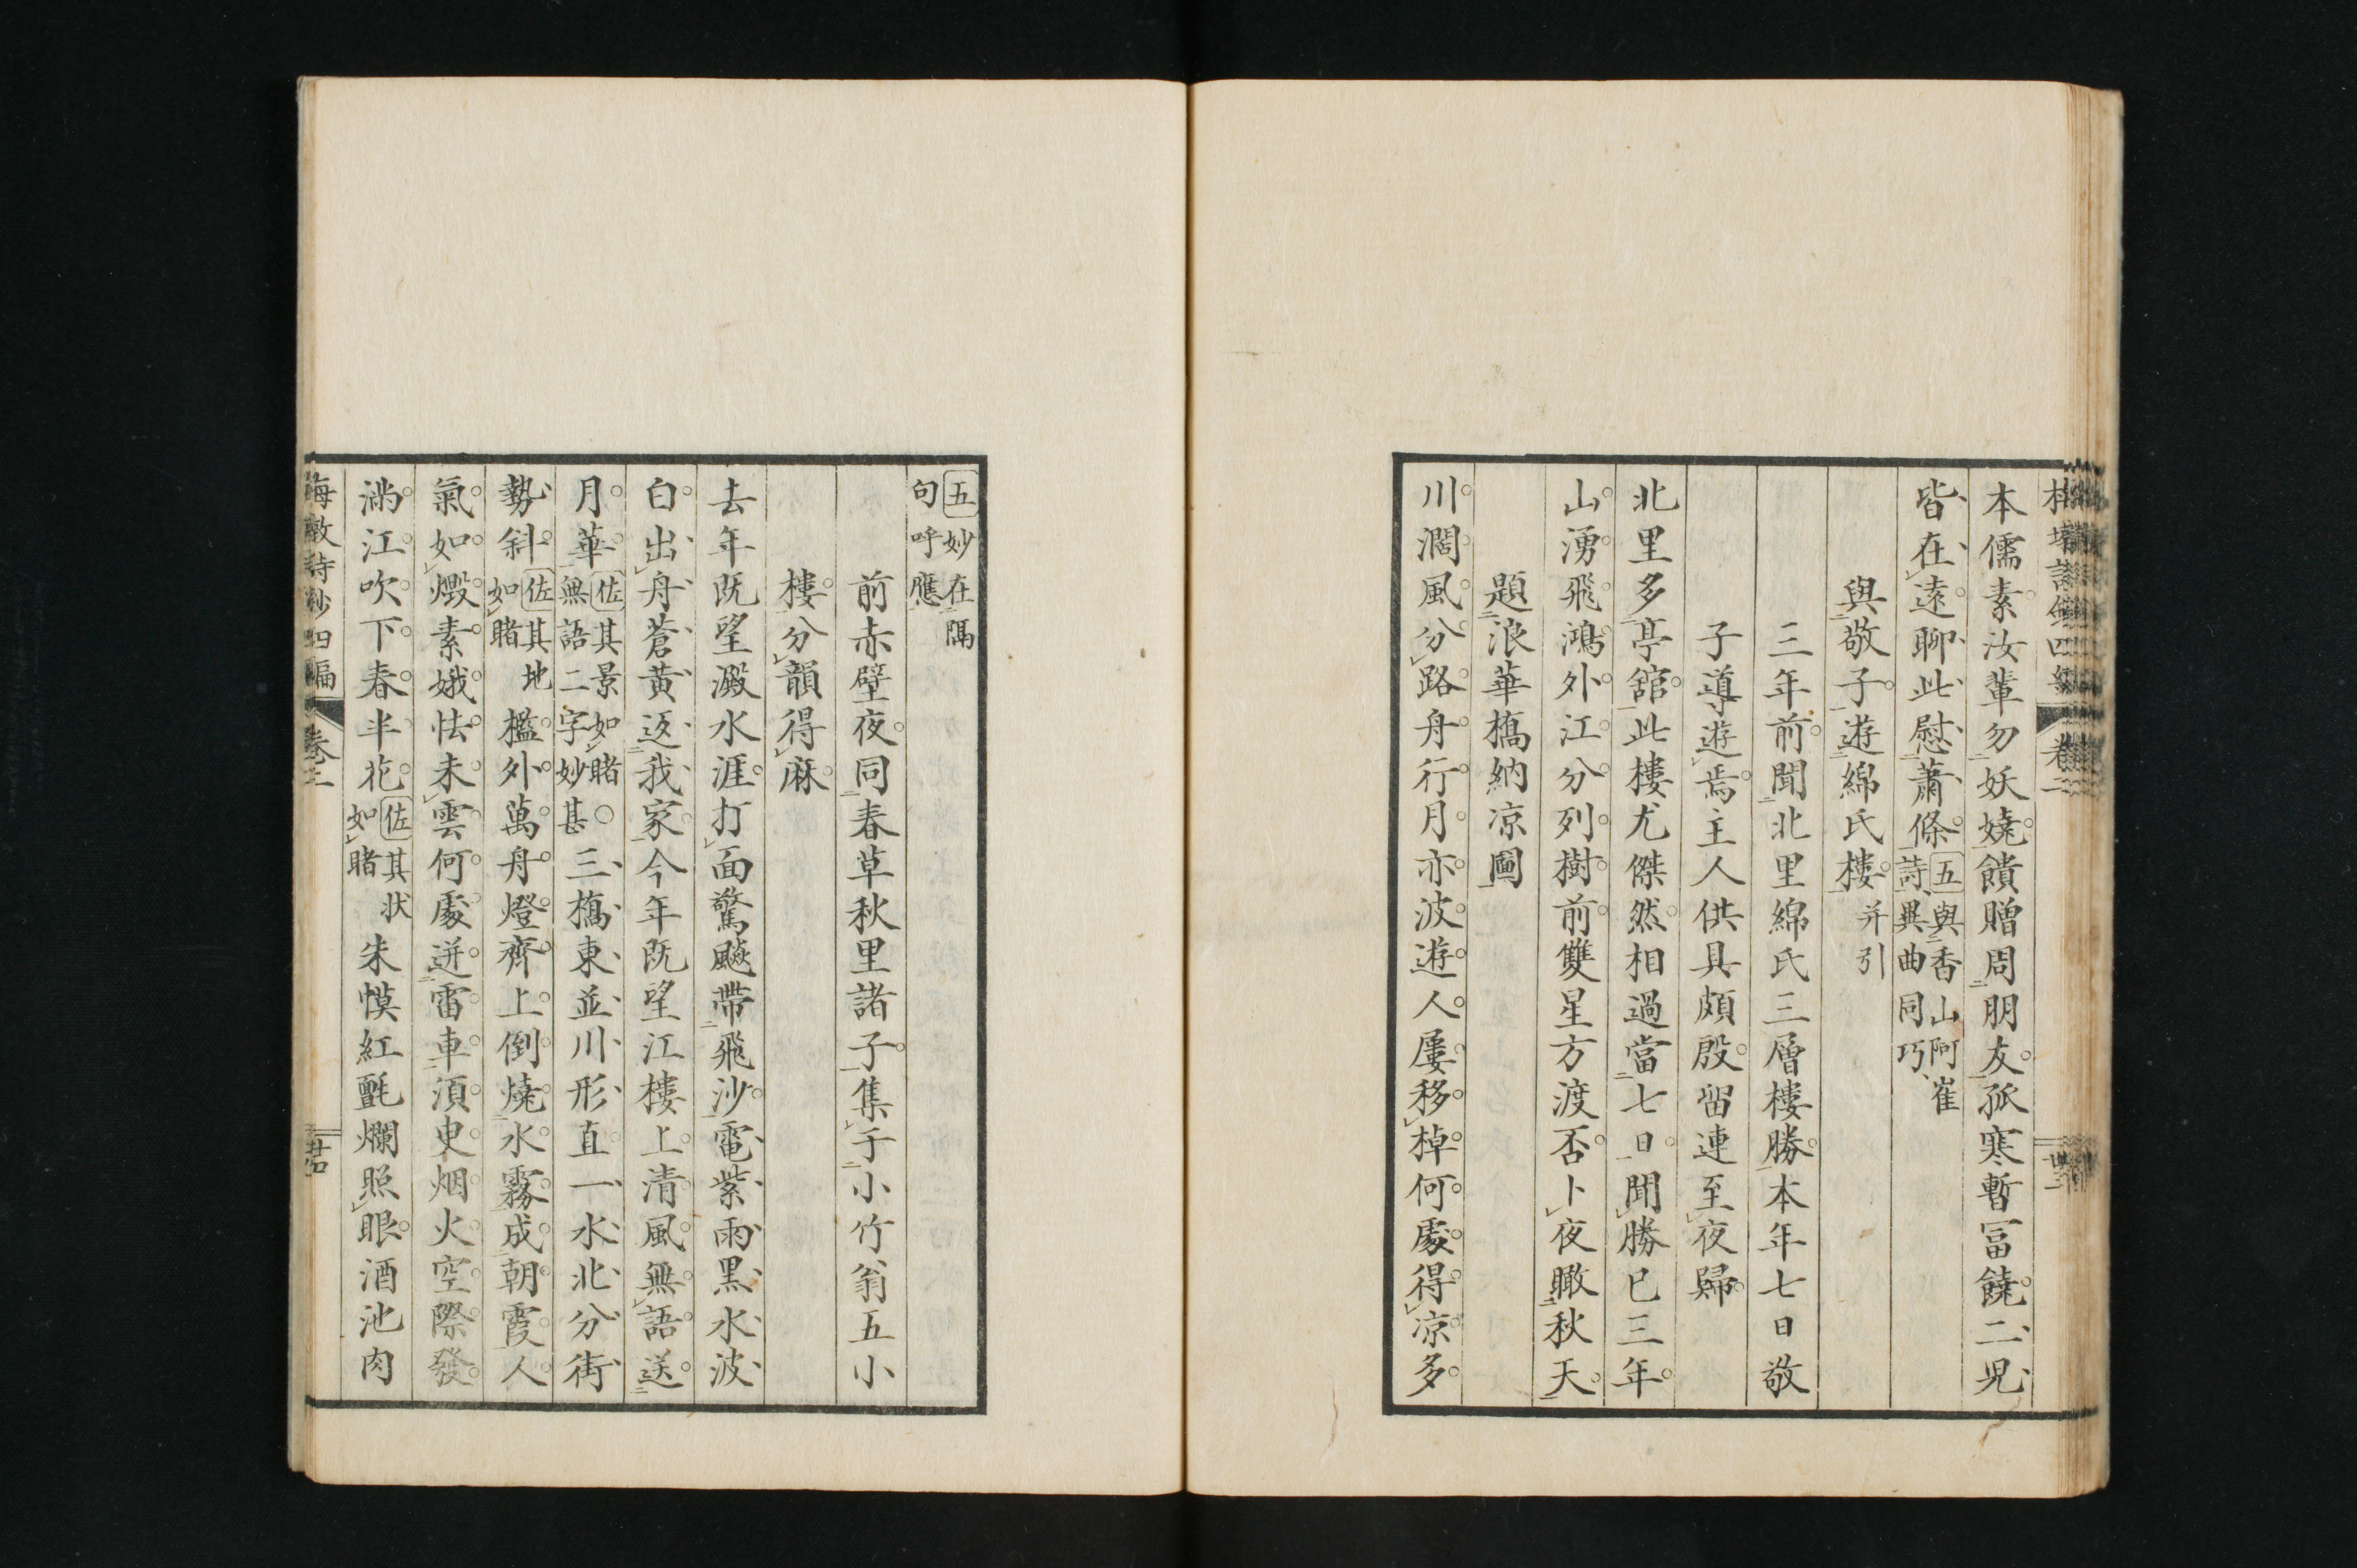 本儒素汝輩勿妖嬈饋贈周朋友孤寒暫冨饒二児
皆在遠聊此慰蕭條
五與香山阿崔
詩異曲同巧
與敬子遊綿氏樓
并引
三年前聞北里綿氏三層樓勝本年七日敬
子導遊焉主人供具頗殷留連至夜歸
北里多亭舘此樓尤傑然相過當七日聞勝已三年
山湧飛鴻外江分列樹前雙星方渡否卜夜瞰秋天
題浪華橋納凉圖
川濶風分路舟行月亦波遊人屢移棹何處得凉多
五妙在隔
句呼應
前赤壁夜同春草秋里諸子集于小竹翁五小
樓分韻得麻
去年既望澱水涯打面驚飈帶飛沙電紫雨黑水波
白出舟蒼黄返我家今年既望江樓上清風無語送
月華
佐其景如睹〇
無語二字妙甚
三橋東並川形直一水北分街
勢斜
佐其地
如睹
檻外萬舟燈齊上倒燒水霧成朝霞人
氣如燬素娥怯未雲何處迸雷車須臾烟火空際發
滿江吹下春半花
佐其状
如睹
朱幙紅氈爛照眼酒池肉
梅墩詩鈔四編 卷二